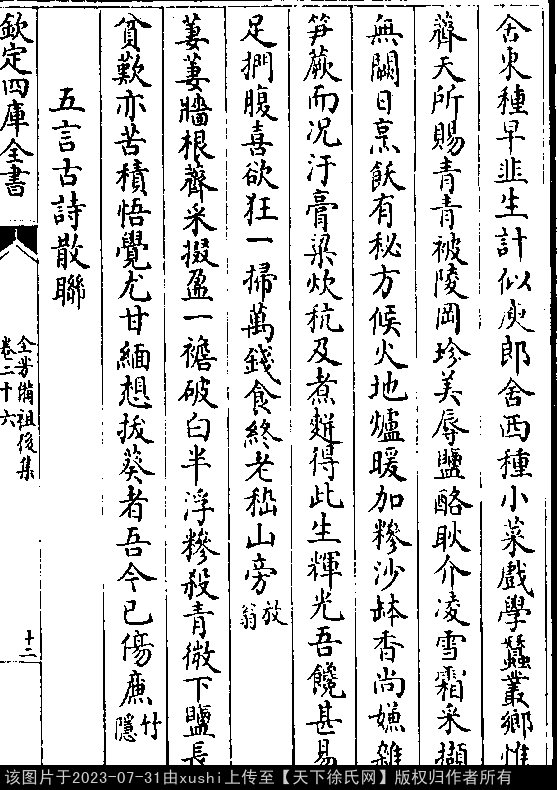 舍東種早韭生計似庾郎舍西種小菜戲學蠶叢鄉惟
薺天所賜青青被陵岡珍美屏鹽酪耿介凌雪霜采擷
無闕日烹飪有秘方候火地爐暖加糝沙缽香尚嫌雜
笋蕨而况汙膏粱炊秔及煮䴵得此生輝光吾饞甚易
足捫腹喜欲狂一掃萬錢食終老嵇山旁放翁
萋萋牆根薺采掇盈一襜破白半浮糝殺青微下鹽長
貧歎亦苦積悟覺尤甘緬想拔葵者吾今已傷廉竹隱
五言古詩散聯
欽定四庫全書
全芳備祖後集
卷二十六
十二
该图片于2023-07-31由xushi上传至【天下徐氏网】版权归作者所有